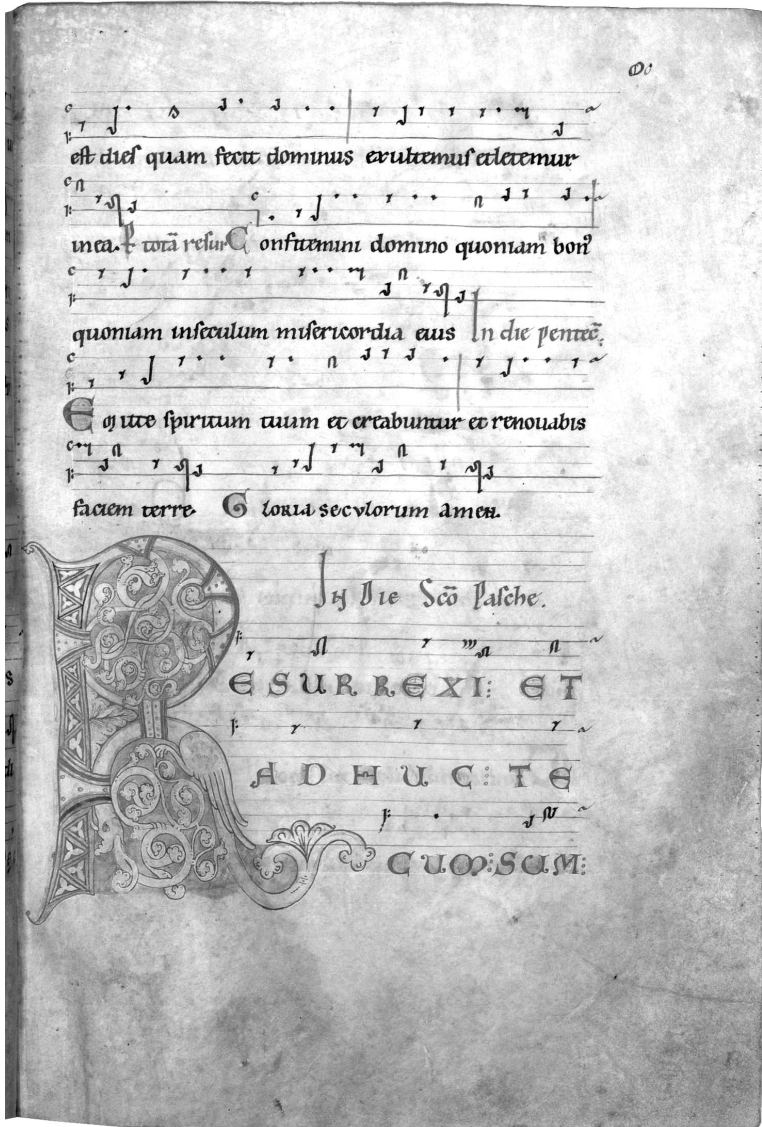 est dies quam fecit dominus exultemus et letemur
in ea. P totā resur Confitemini domino quoniam bonꝰ
quoniam in seculum misericordia eius In die pentec̄.
Emitte spiritum tuum et creabuntur et renouabis
faciem terre. Gloria seculorum amen.
In Die Scō Pasche.
RESURREXI: ET
ADHUC: TE
CUM: SUM: